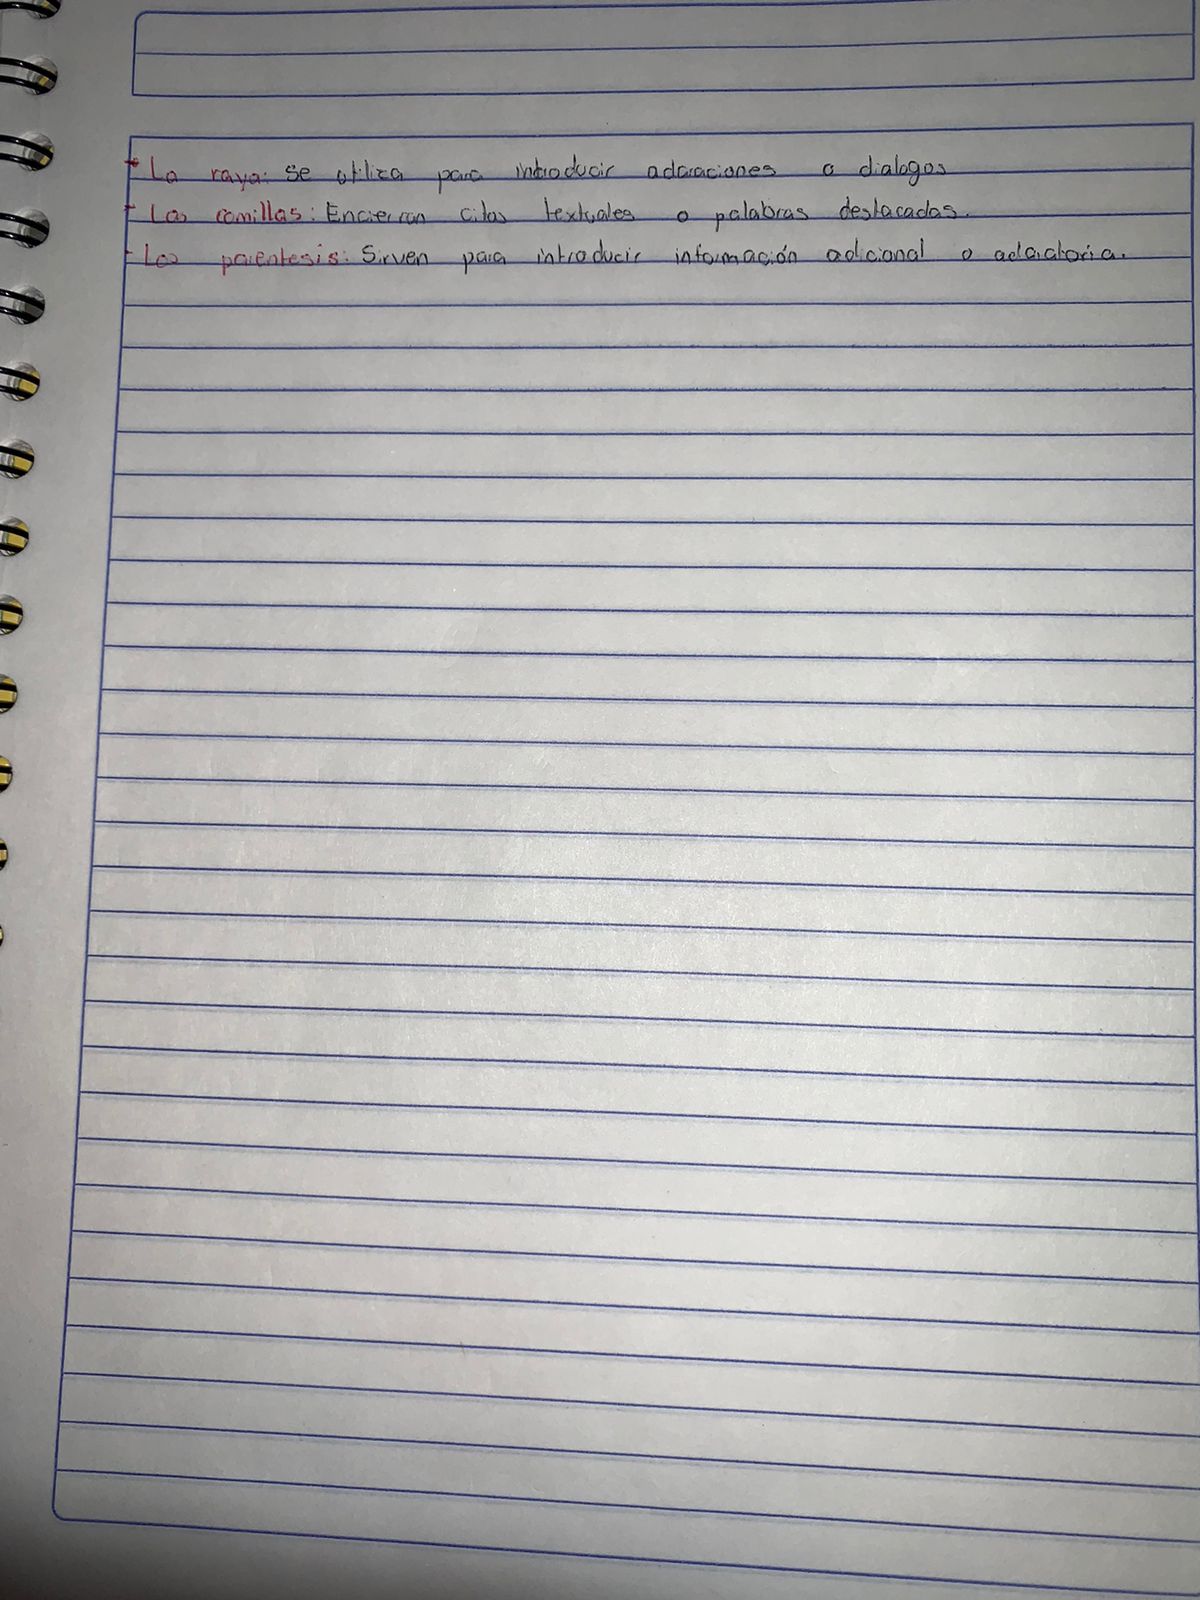 - La raya: se utiliza para introducir aclaraciones o dialogos
- Las comillas: Encierran citas textuales o palabras destacadas.
- Los parentesis: Sirven para introducir información adicional o aclaratoria.